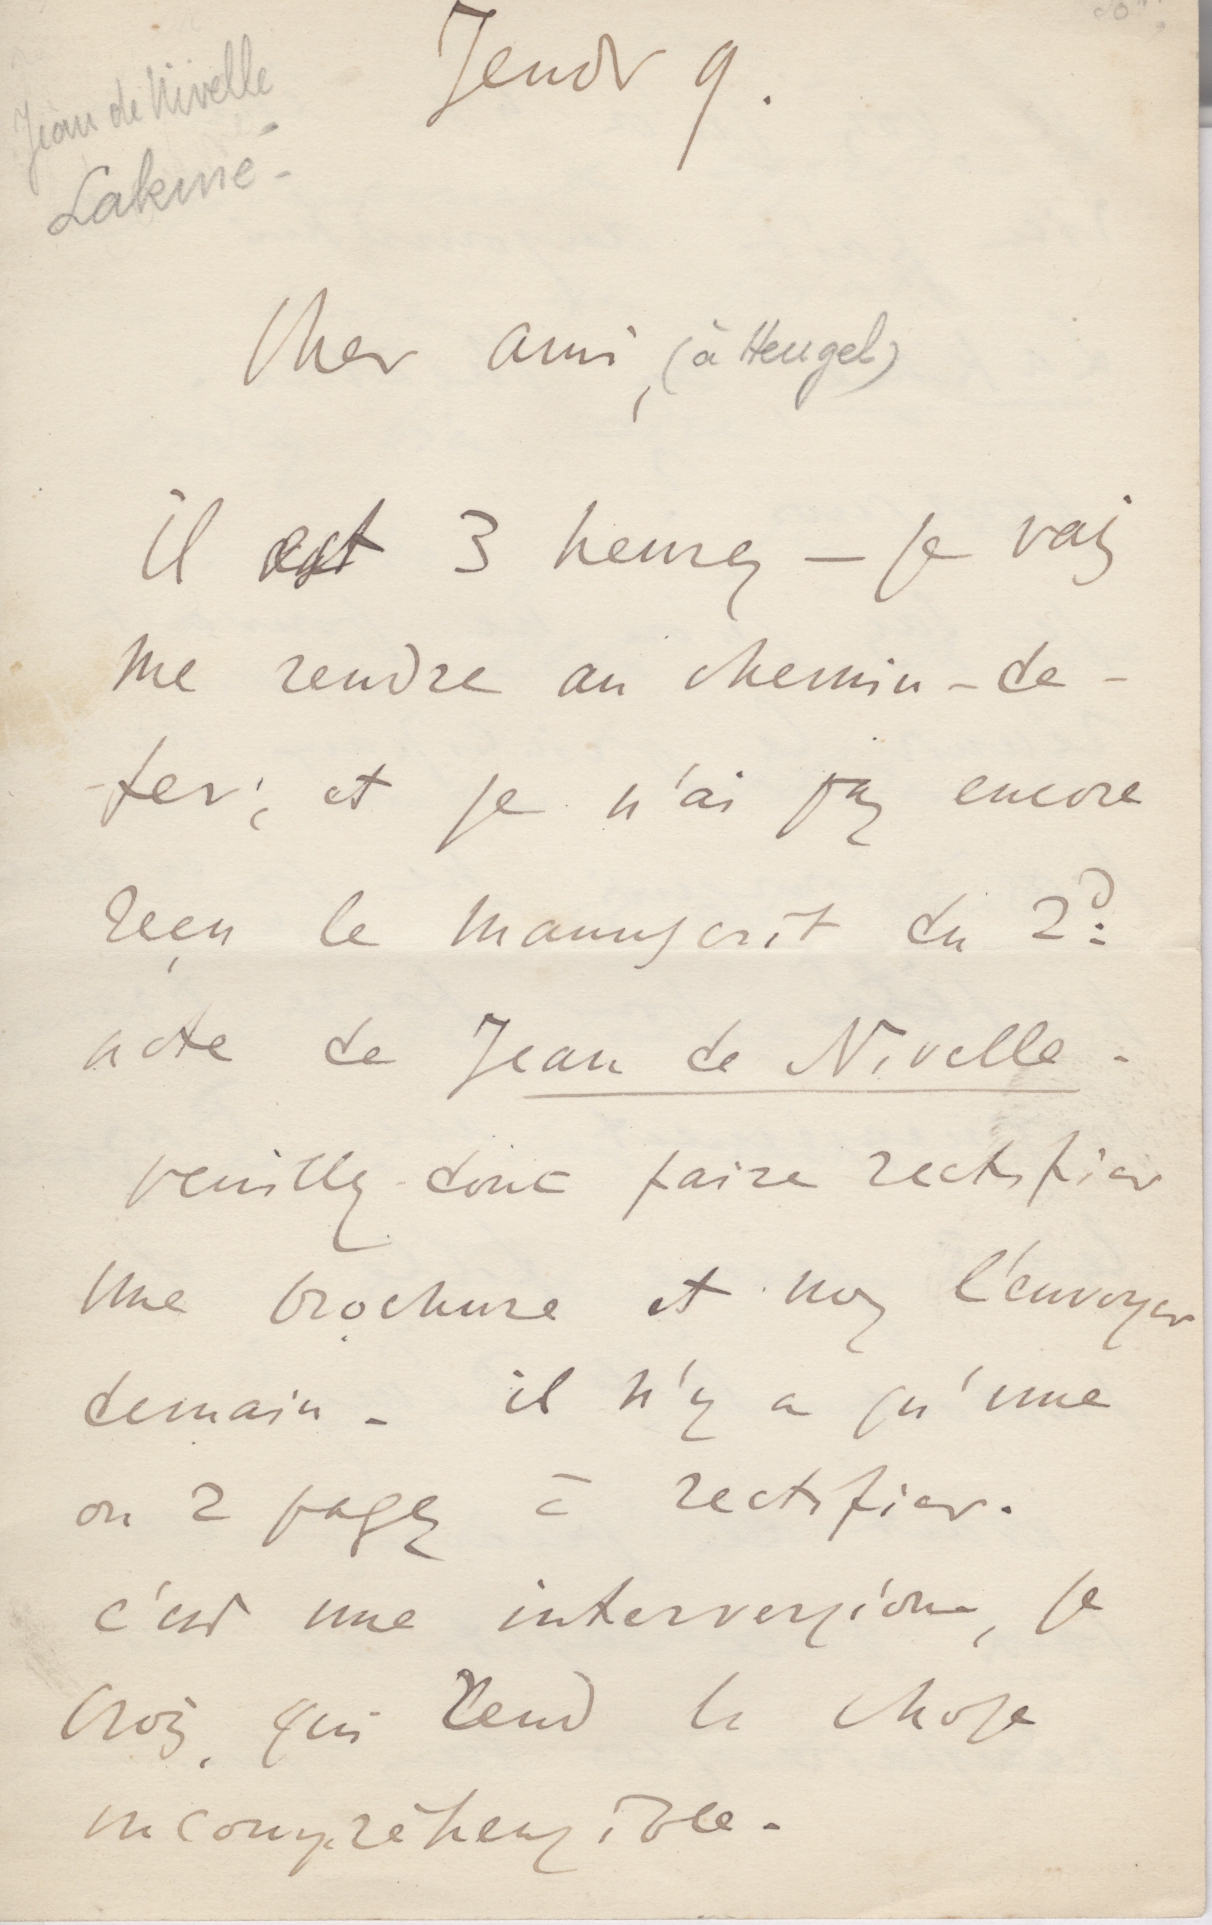 Jeudi 9.
Jean de Nivelle
Lakmé -
Cher ami, (à Heugel)
il est 3 heures — je vais
me rendre au chemin-de-
-fer; et je n'ai pas encore
reçu le manuscrit du 2d
acte de Jean de Nivelle -
veuillez donc faire rectifier
une brochure et nous l'envoyer
demain - il n'y a qu'une
ou 2 pages à rectifier.
c'est une interversion, je
crois, qui rend la chose
incompréhensible.